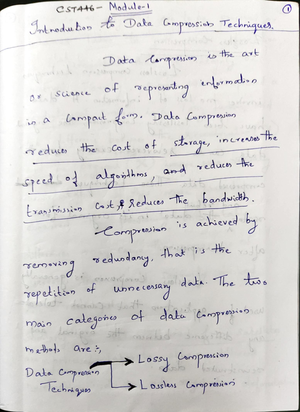 CST446 - Module-1
1
Introduction to Data Compression Techniques.
Data Compression is the art
or science of representing information
in a compact form. Data Compression
reduces the cost of storage, increases the
speed of algorithms, and reduces the
transmission cost & Reduces the bandwidth.
Compression is achieved by
removing redundancy, that is the
repetition of unnecessary data. The two
main categories of data compression
methods are :,
Data Compression
Techniques
Lossy Compression
Lossless Compression